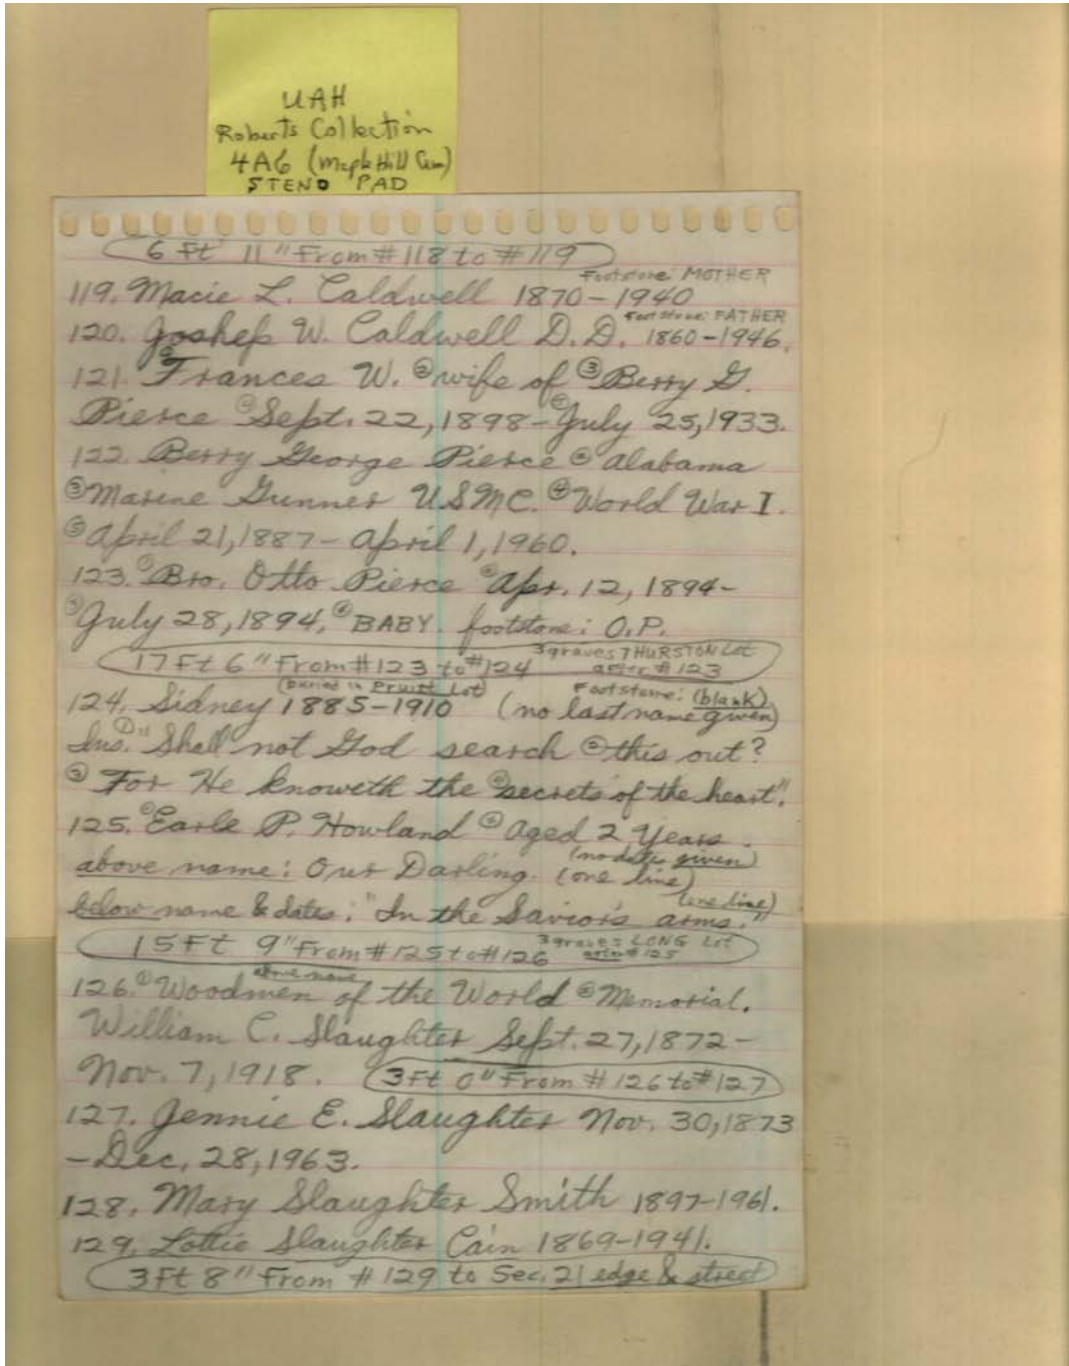 UAH
Roberts Collection
4A6 (Maple Hill Cem)
STENO PAD
6 Ft 11" From #118 to #119
Footstone: MOTHER
119. Macie L. Caldwell 1870-1940
Footstone: FATHER
120. Joshep W. Caldwell D.D. 1860-1946.
121. Frances W. ②wife of ③Berry G.
Pierce ④Sept. 22, 1898-⑤July 25, 1933.
122. Berry George Pierce ② Alabama
③Marine Gunner USMC. ④World War I.
⑤April 21, 1887- April 1, 1960.
123. ①Bro. Otto Pierce ②Apr. 12, 1894-
③July 28, 1894. ④BABY. footstone: O.P.
17 Ft 6" From #123 to #124 3 graves THURSTON Lot
after #123
(buried in Pruitt Lot) Footstone: (blank)
124. Sidney 1885-1910 (no last name given)
Ins. ①"Shall not God search ②this out?
③For He knoweth the ④secrets of the heart".
125. ①Earle P. Howland ② Aged 2 Years.
(no date given)
above name: Our Darling. (one line)
(one line)
below name & dates: "In the Savior's arms."
15 Ft 9" From #125 to #126 3 graves LONG Lot
after #125
above name
126. ①Woodmen of the World ②Memorial.
William C. Slaughter Sept. 27, 1872-
Nov. 7, 1918. 3 Ft 0" From #126 to #127
127. Jennie E. Slaughter Nov. 30, 1873
-Dec. 28, 1963.
128. Mary Slaughter Smith 1897-1961.
129. Lottie Slaughter Cain 1869-1941.
3 Ft 8" From #129 to Sec. 21 edge & street